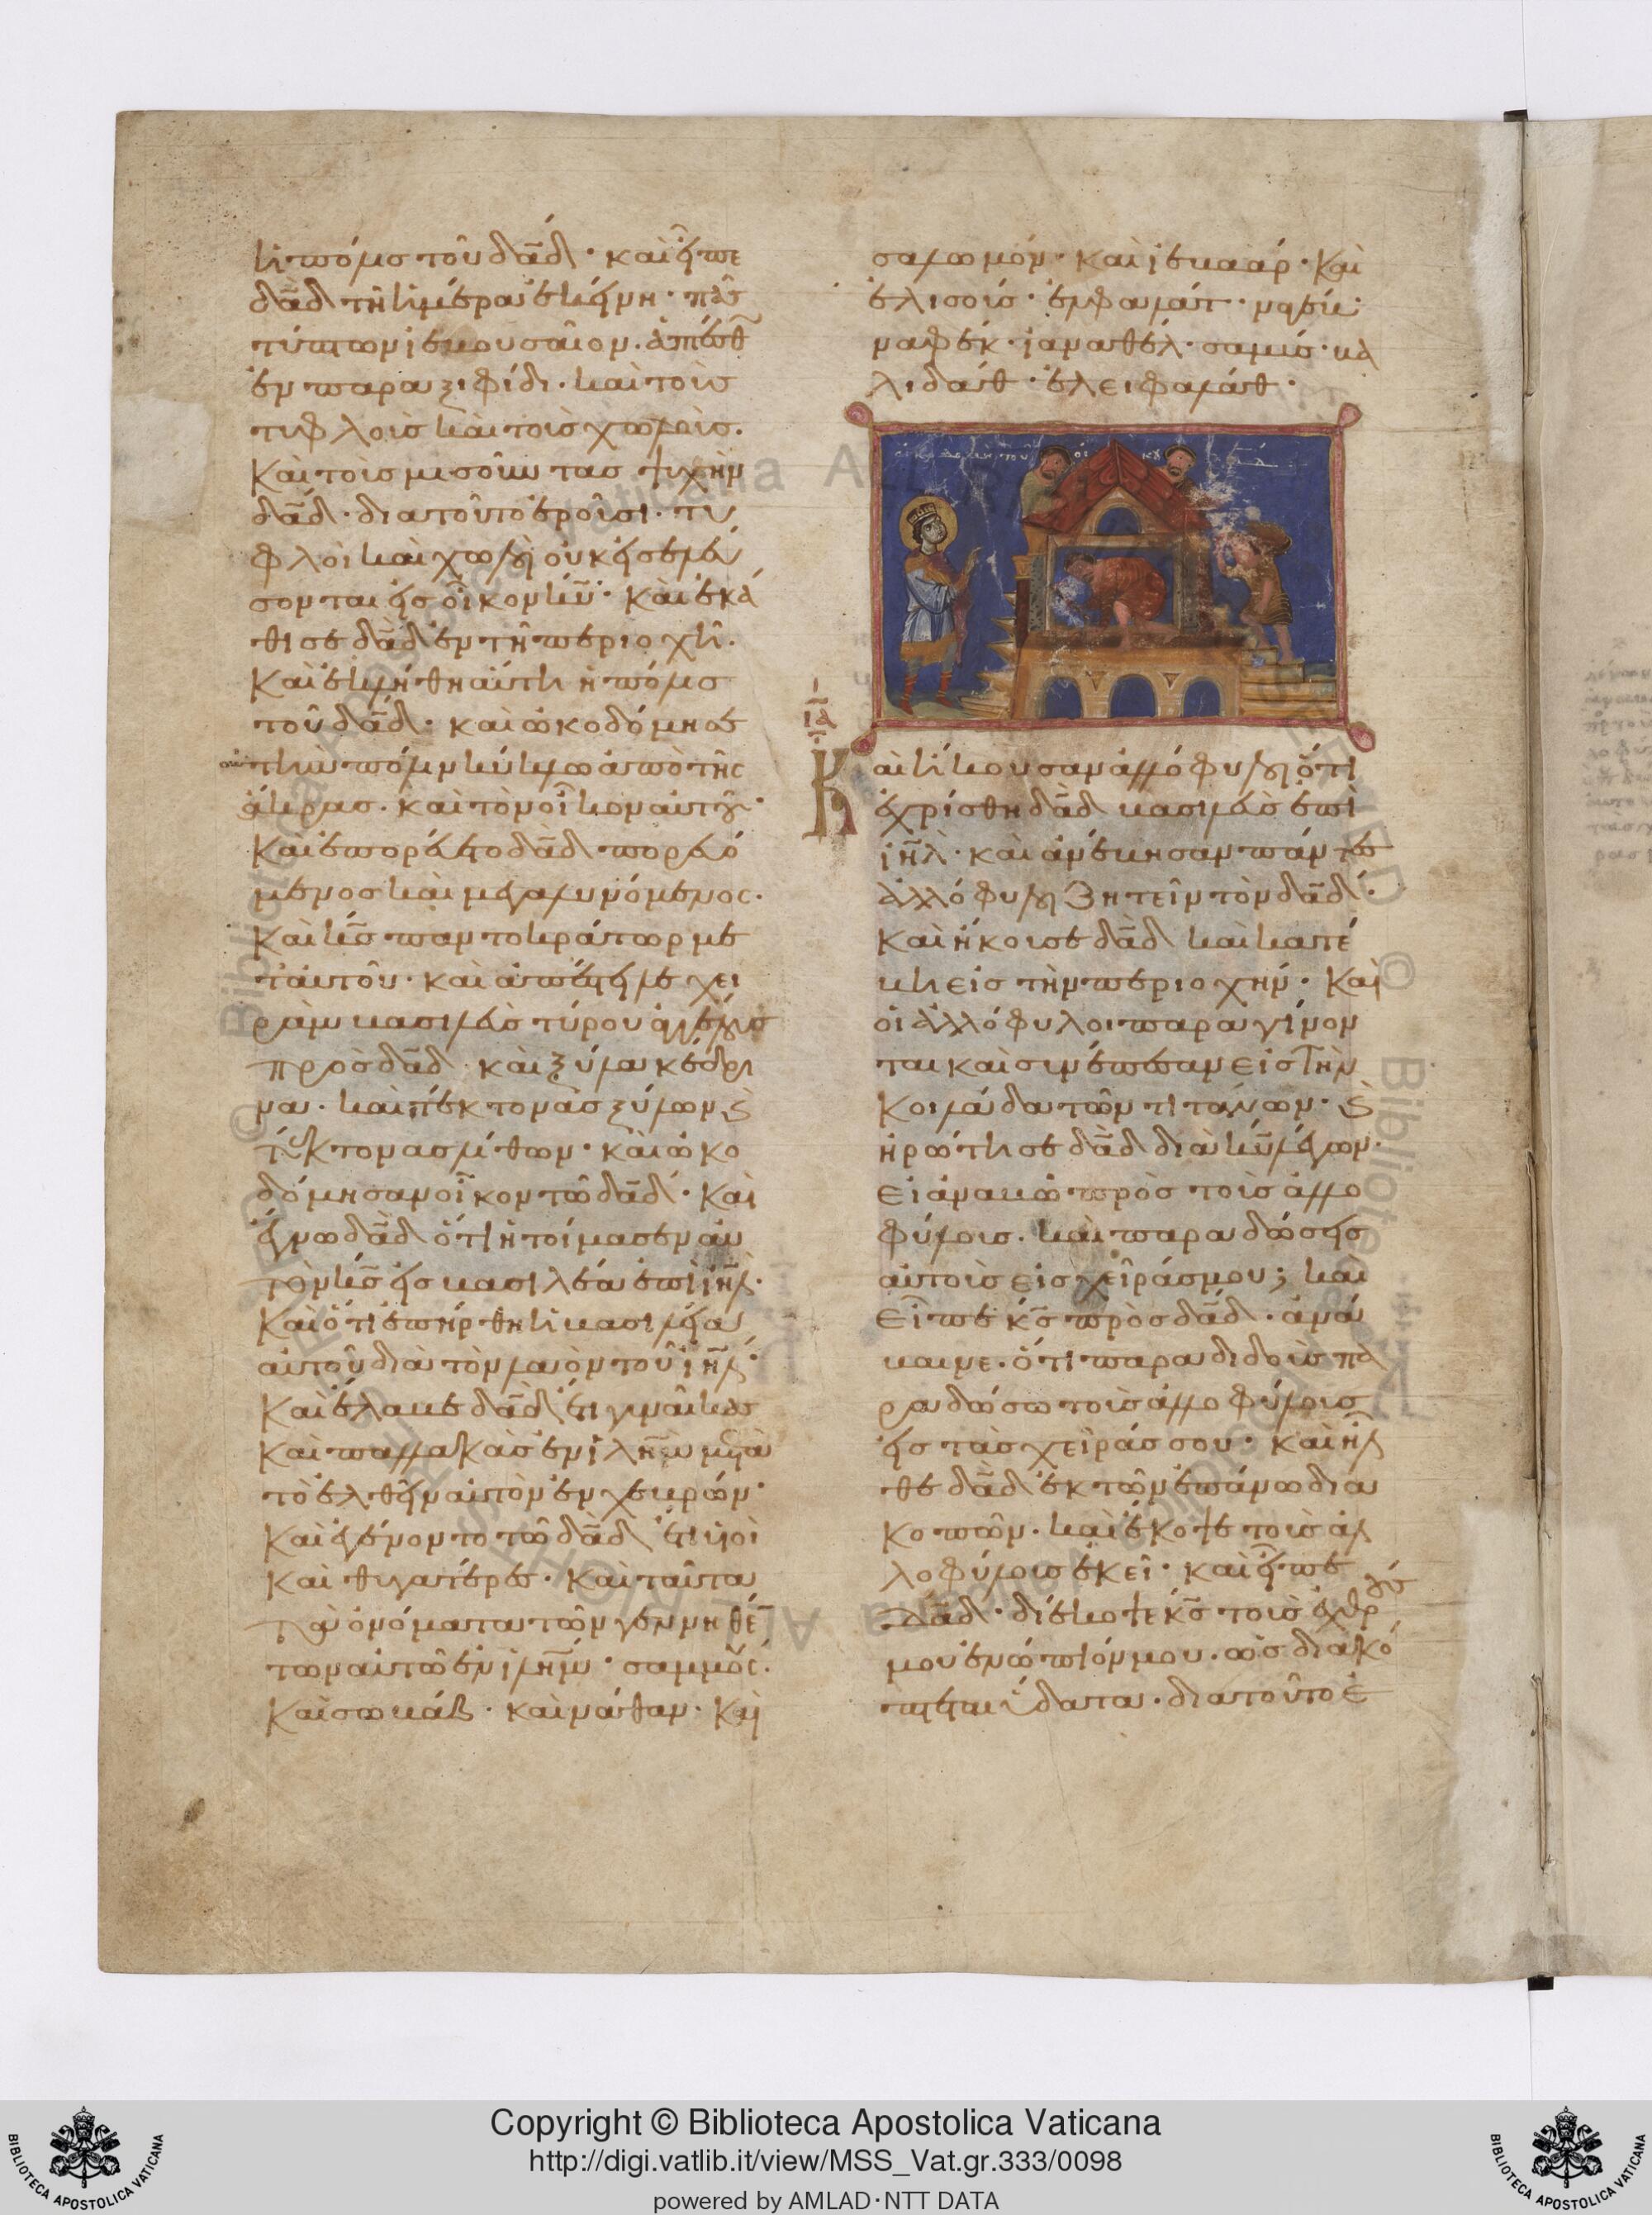 ἡ πόλις τοῦ δᾱδ· καὶ εἶπε
δᾱδ τῆ ἡμέρα ἐκείνη· πᾶς
τύπτων ἰεβουσαῖον. ἁπτέσθ
ἐν παραξιφίδι. καὶ τοὺς
τυφλοὺς καὶ τοὺς χωλοὺς.
Καὶ τοὺς μισοῦντας ψυχὴν
δᾱδ· διατοῦτο ἐροῦσι· τυ
φλοὶ καὶ χωλοὶ οὐκ εἰσελεύ
σονται εἰς οἶκον κῡ· Καὶ ἐκά
θισε δᾱδ ἐν τῆ περιοχῆ.
Καὶ ἐκλήθη αὕτη ἡ πόλις
τοῦ δᾱδ· καὶ ὠκοδόμησεν
αὐτὴν πόλιν κύκλω ἀπὸ τῆς
ἄκρας. καὶ τὸν οἶκον αὐτοῦ·
Καὶ ἐπορεύετο δᾱδ πορευό
μενος καὶ μεγαλυνόμενος.
Καὶ κ̄ς παντοκράτωρ με
τ' αὐτοῦ· καὶ ἀπέστειλε χει
ρὰμ βασιλεὺς τύρου ἀγγέλους
πρὸς δᾱδ· καὶ ξύλα κέδρι
να· καὶ τέκτονας ξύλων ϗ
τέκτονας λίθων· καὶ ὠκο
δόμησαν οἶκον τῶ δᾱδ· Καὶ
ἔγνω δᾱδ ὅτι ἡτοίμασεν αὐ
τὸν κ̄ς εἰς βασιλέα ἐπὶ ιη̄λ·
Καὶ ὅτι ἐπήρθη ἡ βασιλεία
αὐτοῦ διὰ τὸν λαὸν τοῦ ιη̄λ·
Καὶ ἔλαβε δᾱδ ἔτι γυναῖκας
καὶ παλλακὰς ἐν ιλη̄μ μετὰ
τὸ ἐλθεῖν αὐτὸν ἐν χεβρών·
Καὶ ἐγένοντο τῶ δᾱδ ἔτι υἱοὶ
καὶ θυγατέρες· Καὶ ταῦτα
τὰ ὀνόματα τῶν γεννηθέ
των αὐτῶ ἐν ιλη̄μ· σαμμοῦς·
Καὶ σωβάβ· καὶ νάθαν· Καὶ
σαλωμόν· καὶ ἰεβαάρ· Καὶ
ἐλισούς· ἐνφαλάτ· ναφέκ·
ναφέκ· ἰαναθέλ· σαμύς· βα
λιδάθ· ἐλειφαλάθ·
ῑᾱ
Καὶ ἤκουσαν ἀλλόφυλοι ὅτι
ἐχρίσθη δᾱδ βασιλεὺς ἐπὶ
ιη̄λ· καὶ ἀνέβησαν πάντες
ἀλλόφυλοι ζητεῖν τὸν δᾱδ·
Καὶ ἤκουσε δᾱδ καὶ κατέ
βη εἰς τὴν περιοχήν· Καὶ
οἱ ἀλλόφυλοι παραγίνον
ται καὶ συνέπεσαν εἰς τὴν
κοιλάδα τῶν τιτάνων· ϗ
ἠρώτησε δᾱδ διὰ κῡ λέγων·
Εἰ ἀναβῶ πρὸς τοὺς ἀλλο
φύλους. καὶ παραδώσεις
αὐτοὺς εἰς χεῖράς μου; καὶ
εἶπε κ̄ς πρὸς δᾱδ· ἀνά
βαινε. ὅτι παραδιδοὺς πα
ραδώσω τοὺς ἀλλοφύλους
εἰς τὰς χεῖράς σου· καὶ ἦλ
θε δᾱδ ἐκ τῶν ἐπάνω δια
κοπῶν. καὶ ἔκοψε τοὺς ἀλ
λοφύλους ἐκεῖ· καὶ εἶπε
δᾱδ· διέκοψε κ̄ς τοὺς ἐχθρούς
μου ἐνώπιόν μου. ὡς διακό
πτεται ὕδατα. διατοῦτο ἐ
Copyright © Biblioteca Apostolica Vaticana
http://digi.vatlib.it/view/MSS_Vat.gr.333/0098
powered by AMLAD·NTT DATA
BIBLIOTECA APOSTOLICA VATICANA
BIBLIOTECA APOSTOLICA VATICANA